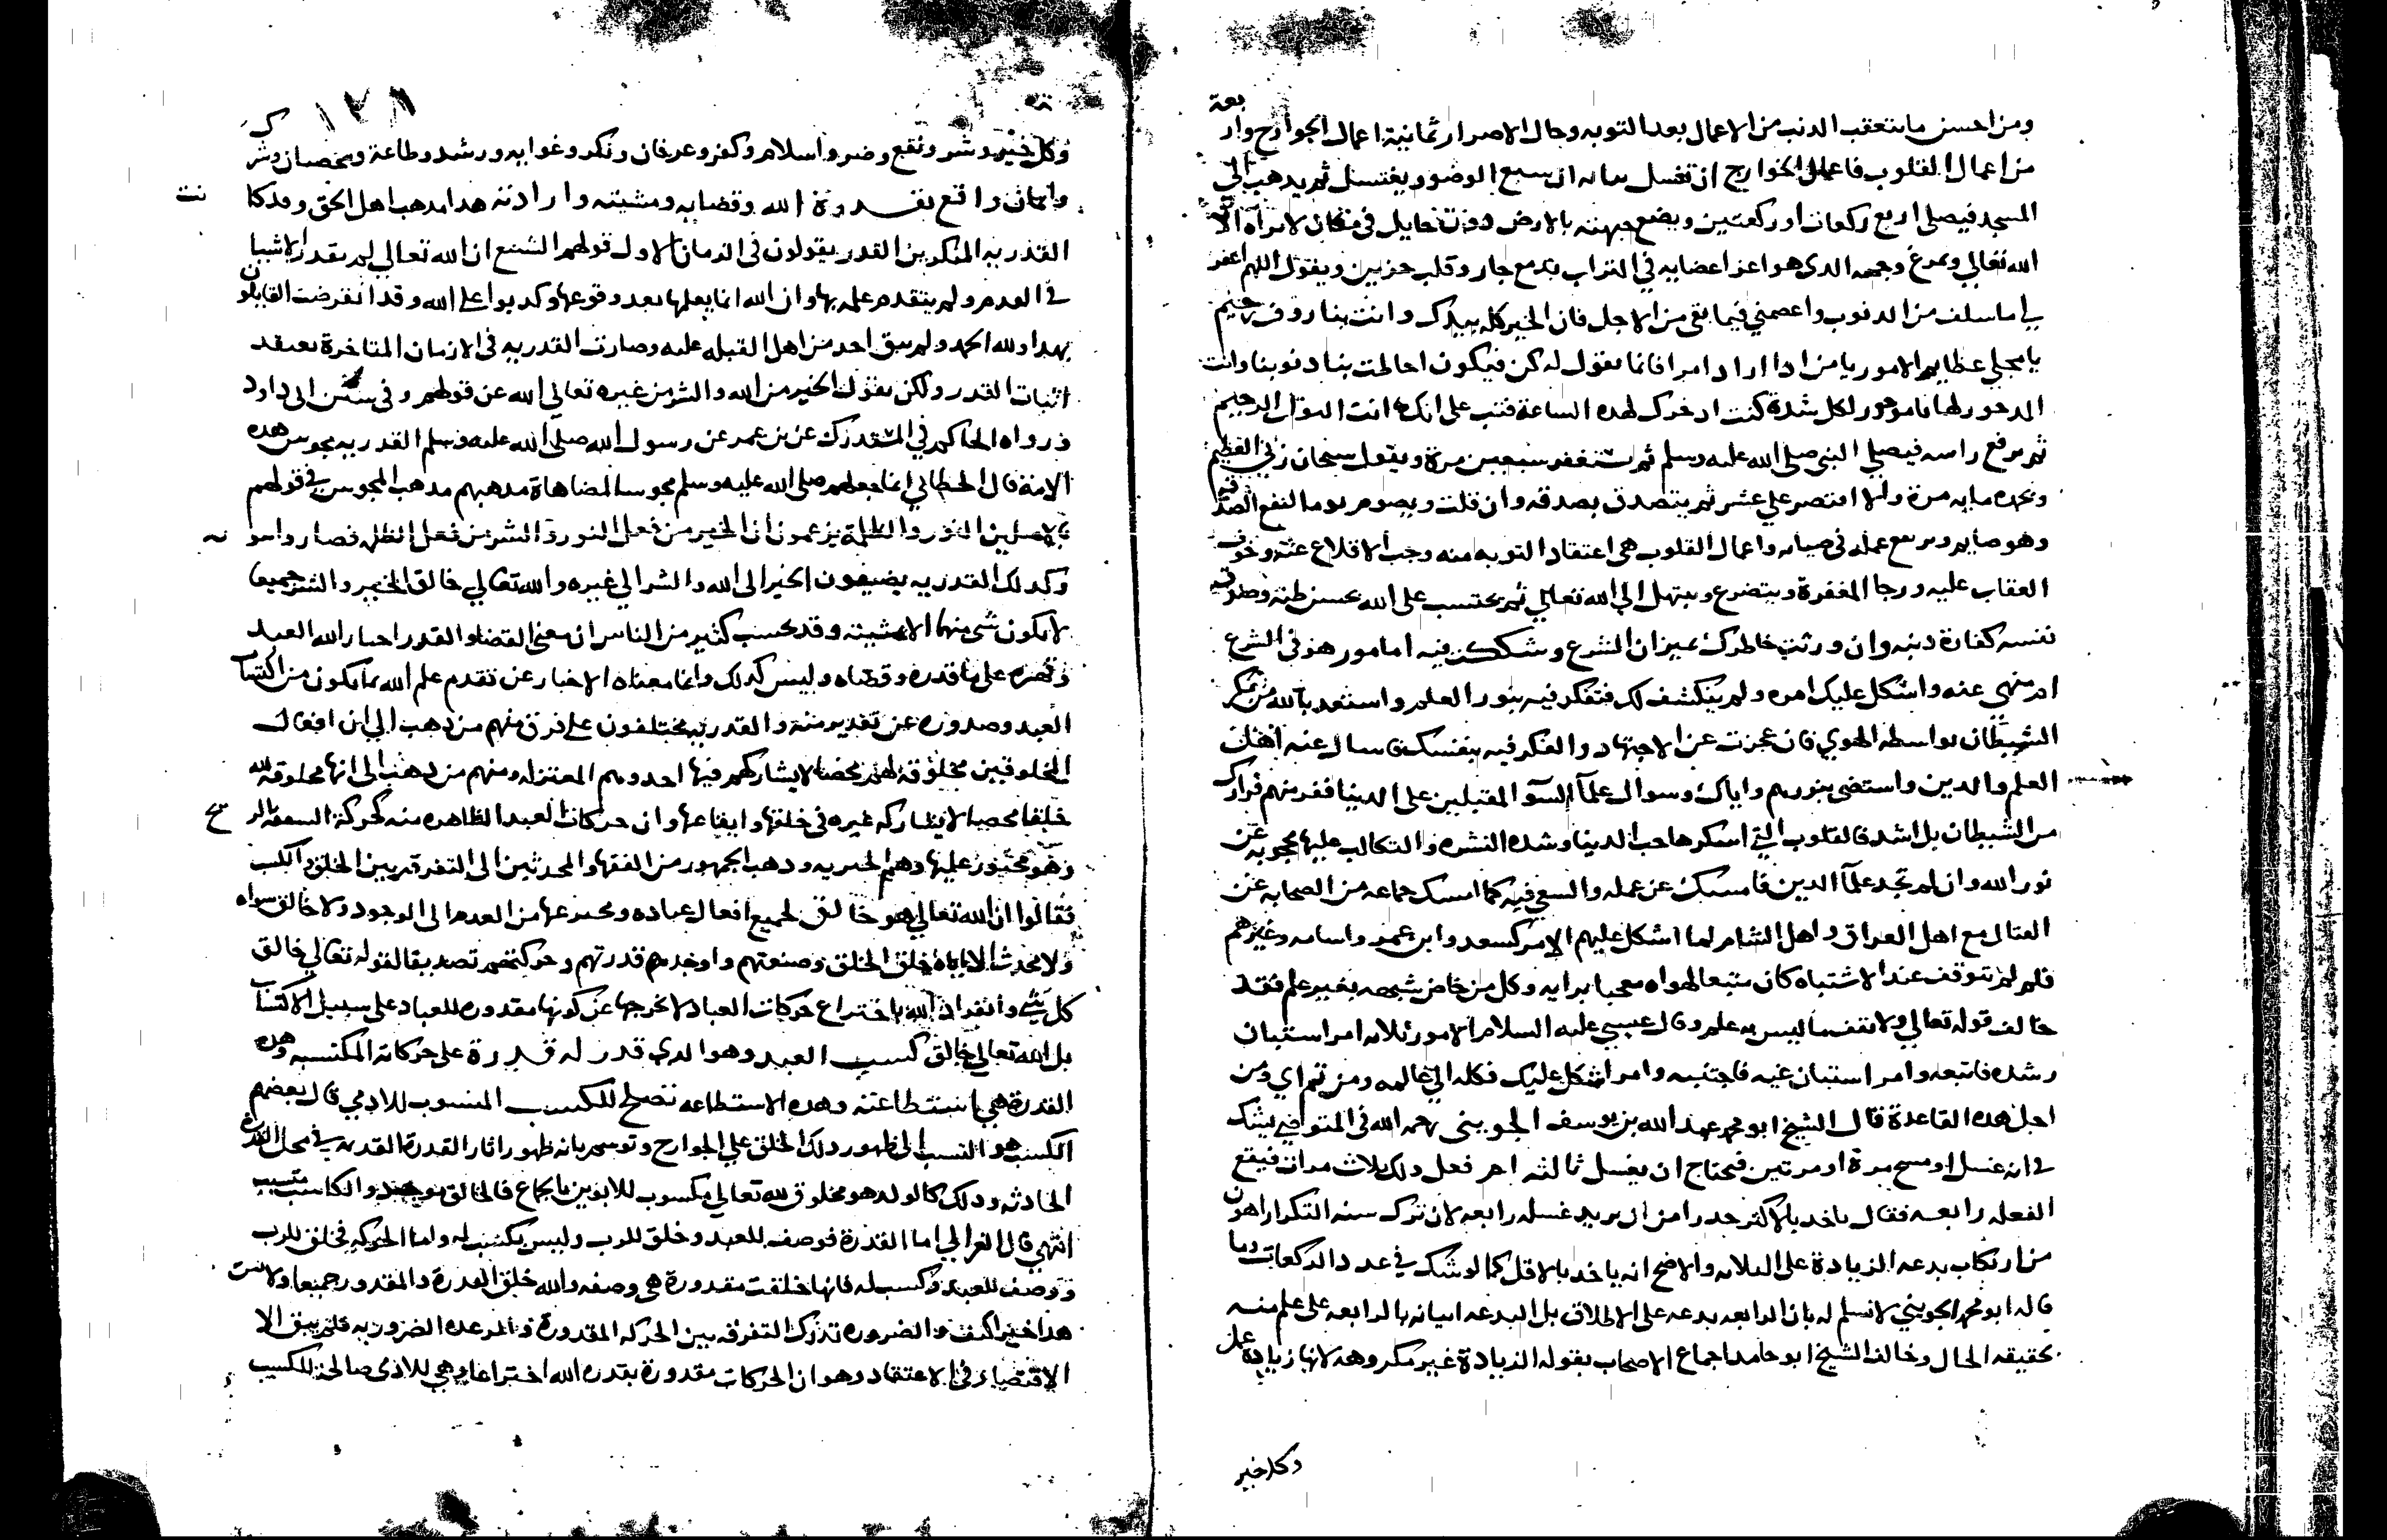 ومن احسن ما يتعقب الذنب من الاعمال بعد التوبه وحال الاصرار ثمانية اعمال الجوارح وار
بعة
من اعمال القلوب فاعمال الجوارح ان تغسل ان سبع الوضو ويغتسل ثم يذهب الى
المسجد فيصلى اربع ركعات او ركعتين ويضع جبهته بالارض دون حايل فى مكان لا يراه الا
الله تعالى ويمرغ وجهه الدى هو اعز اعضايه في التراب بدمع جار وقلب حزين ويقول اللهم اغفر
لي ما سلف من الدنوب واعصمني فيما بقى من الاجل فان الخير كله بيدك وانت بنا روف رحيم
يا مجلي عظايم الامور يا من ادا اراد امرا فانما يقول له كن فيكون احالت بنا دنوبنا وانت
المدخور لها يا مدخور لكل شدة كنت ادخرك لهده الساعة فتب على انك انت التواب الرحيم
ثم يرفع راسه فيصلي النبى صلى الله عليه وسلم ثم يستغفر سبعين مرة ويقول سبحان ربي العظيم
وبحمده مايه مرة والا اقتصر علي عشر ثم يتصدق بصدقه وان قلت ويصوم يوما لتقع الصدقه
وهو صايم ويرفع عمله فى صيامه واعمال القلوب هى اعتقاد التوبه منه وجب الاقلاع عنه وخوف
العقاب عليه ورجا المغفرة ويتضرع ويبتهل الي الله تعالي ثم يحتسب على الله بحسن ظنه وصدق
نفسه كفارة دنبه وان ورثت خاطرك بميزان الشرع وشككت فيه امامور هو فى الشرع
ام منهي عنه واشكل عليك امره ولم ينكشف لك فتفكر فيه بنور العلم واستعد بالله من مكر
الشيطان بواسطه الهوي فان عجزت عن الاجتهاد والفكر فيه بنفسك فاسال عنه اهل
العلم والدين واستضى بنورهم واياك وسوال علمآ السوٓ المقبلين على الدنيا ففر منهم فرارك
من الشيطان بل اشد فالقلوب التي اسكرها حب الدنيا وشده الشره والتكالب عليها محجوبه عن
نور الله وان لم تجد علمآ الدين فامسك عن عمله والسعي فيه كما امسك جماعه من الصحابه عن
القتال مع اهل العراق واهل الشام لما اشكل عليهم الامر كسعد وابن عمر واسامه وغيرهم
فلم لم يتوقف عند الاشتباه كان متبعا لهواه معجبا برايه وكل من خاض شبهه بغير علم فقد
خالف قوله تعالي ولا تقف ما ليس به علم وقال عيسي عليه السلام الامور ثلاثه امر استبان
رشده فاتبعه وامر استبان غيه فاجتنبه وامر اشكل عليك فكله الي عالمه ومن ثم اي ومن
اجل هده القاعدة قال الشيخ ابو محمد عبد الله بن يوسف الجويني رحمه الله فى المتوضي يشك
في انه غسل او مسح مرة او مرتين فيحتاج ان يغسل ثالثه ام فعل دلك ثلاث مرات فيقع
الفعله رابعه فقال ياخد بالاكثر حدرا من ان يريد غسله رابعه لان ترك سنه التكرار اهون
من ارتكاب بدعه الزيادة على الثلاثه والاصح انه ياخد بالاقل كما لو شك في عدد الركعات وما
قاله ابو محمد الجويني لا نسلم له بان الرابعه بدعه على الاطلاق بل البدعه اتيانه بالرابعه على علم منه
بحقيقه الحال وخالف الشيخ ابو حامد اجماع الاصحاب بقوله الزيادة غير مكروهه لانها زيادة عمل
وكل خير
١٢٨
وكل خير وشر ونفع وضر واسلام وكفر وعرفان ونكر وغوايه ورشد وطاعة وعصيان وشرك
وايمان واقع بقدرة الله وقضايه ومشيته وارادته هدا مدهب اهل الحق وقد كانت
القدريه المنكرين القدر يقولون فى الزمان الاول قولهم الشنيع ان الله تعالي لم يقدر الاشيا
في العدم ولم يتقدم علمه بها وان الله انما يعلمها بعد وقوعها وكدبوا على الله وقد انقرضت القايلون
بهدا ولله الحمد ولم يبق احد من اهل القبله عليه وصارت القدريه فى الازمان المتاخرة تعتقد
اثبات القدر ولكن يقول الخير من الله والشر من غيره تعالي الله عن قولهم وفى سنن ابى داود
ورواه الحاكم في المستدرك عن بن عمر عن رسول الله صلى الله عليه وسلم القدريه مجوس هده
الامة قال الخطابي انما جعلهم صلى الله عليه وسلم مجوسا لمضاهاة مدهبهم مدهب المجوس في قولهم
بالاصلين النور والظلمة يزعمون ان الخير من فعل النور والشر من فعل الظلمه فصاروا ثنويه
وكدلك القدريه يضيفون الخير الى الله والشر الي غيره والله تعالي خالق الخير والشر جميعا
لا يكون شى منهما الا بمشيته وقد يحسب كثير من الناس ان معنى القضاو القدر اجبار الله العبد
وقهره على ما قدره وقضاه وليس كدلك وانما معناه الاخبار عن تقدم علم الله بما يكون من اكتساب
العبد وصدوره عن تقدير منه والقدريه مختلفون على فرق منهم من دهب الي ان افعال
المخلوقين مخلوقه لهم محضا لا يشاركهم فيها احد وهم المعتزله ومنهم من دهب الى انها مخلوقه لله
خلقا محضا لا يشاركه غيره فى خلقها وايقاعها وان حركات العبد الظاهره منه كحركة السعفه بالريح
وهو مجبور عليها وهم الجبريه ودهب الجمهور من الفقها والمحدثين الى التفرقه بين الخلق والكسب
فقالوا ان الله تعالي هو خالق لجميع افعال عباده ومخترعها من العدم الى الوجود ولا خالق سواه
ولا محدث الا اياه خلق الخلق وصنعتهم واوجد قدرتهم وحركتهم تصديقا لقوله تعالي خالق
كل شي وانفراد الله باختراع حركات العباد لا يخرجها عن كونها مقدوره للعباد على سبيل الاكتساب
بل الله تعالي خالق كسب العبد وهو الدي قدر له قدرة على حركاته المكتسبه وهده
القدرة هي استطاعته وهده الاستطاعه تصلح للكسب المنسوب للادمي قال بعضهم
الكسب هو النسب الى ظهور دلك الخلق علي الجوارح ورسم بانه ظهور اثار القدرة القديمه في محل القدرة
الحادثه ودلك كالولد هو مخلوق لله تعالي مكسوب للابوين باجماع فالخالق موجد والكاسب متسبب
انتهى قال الغزالي اما القدرة فوصف للعبد وخلق للرب وليس بكسب له واما الحركه فخلق للرب
ووصف للعبد وكسب له فانها خلقت مقدورة هى وصفه والله خلق القدرة والمقدور جميعا
والضروره تدرك التفرقه بين الحركه المقدورة والرعده الضروريه فلم يبق الا
الاقتصاد فى الاعتقاد وهو ان الحركات مقدورة بقدره الله اختراعا وهي للادمى صالحة للكسب